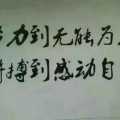 力到无能为
搏到感动自